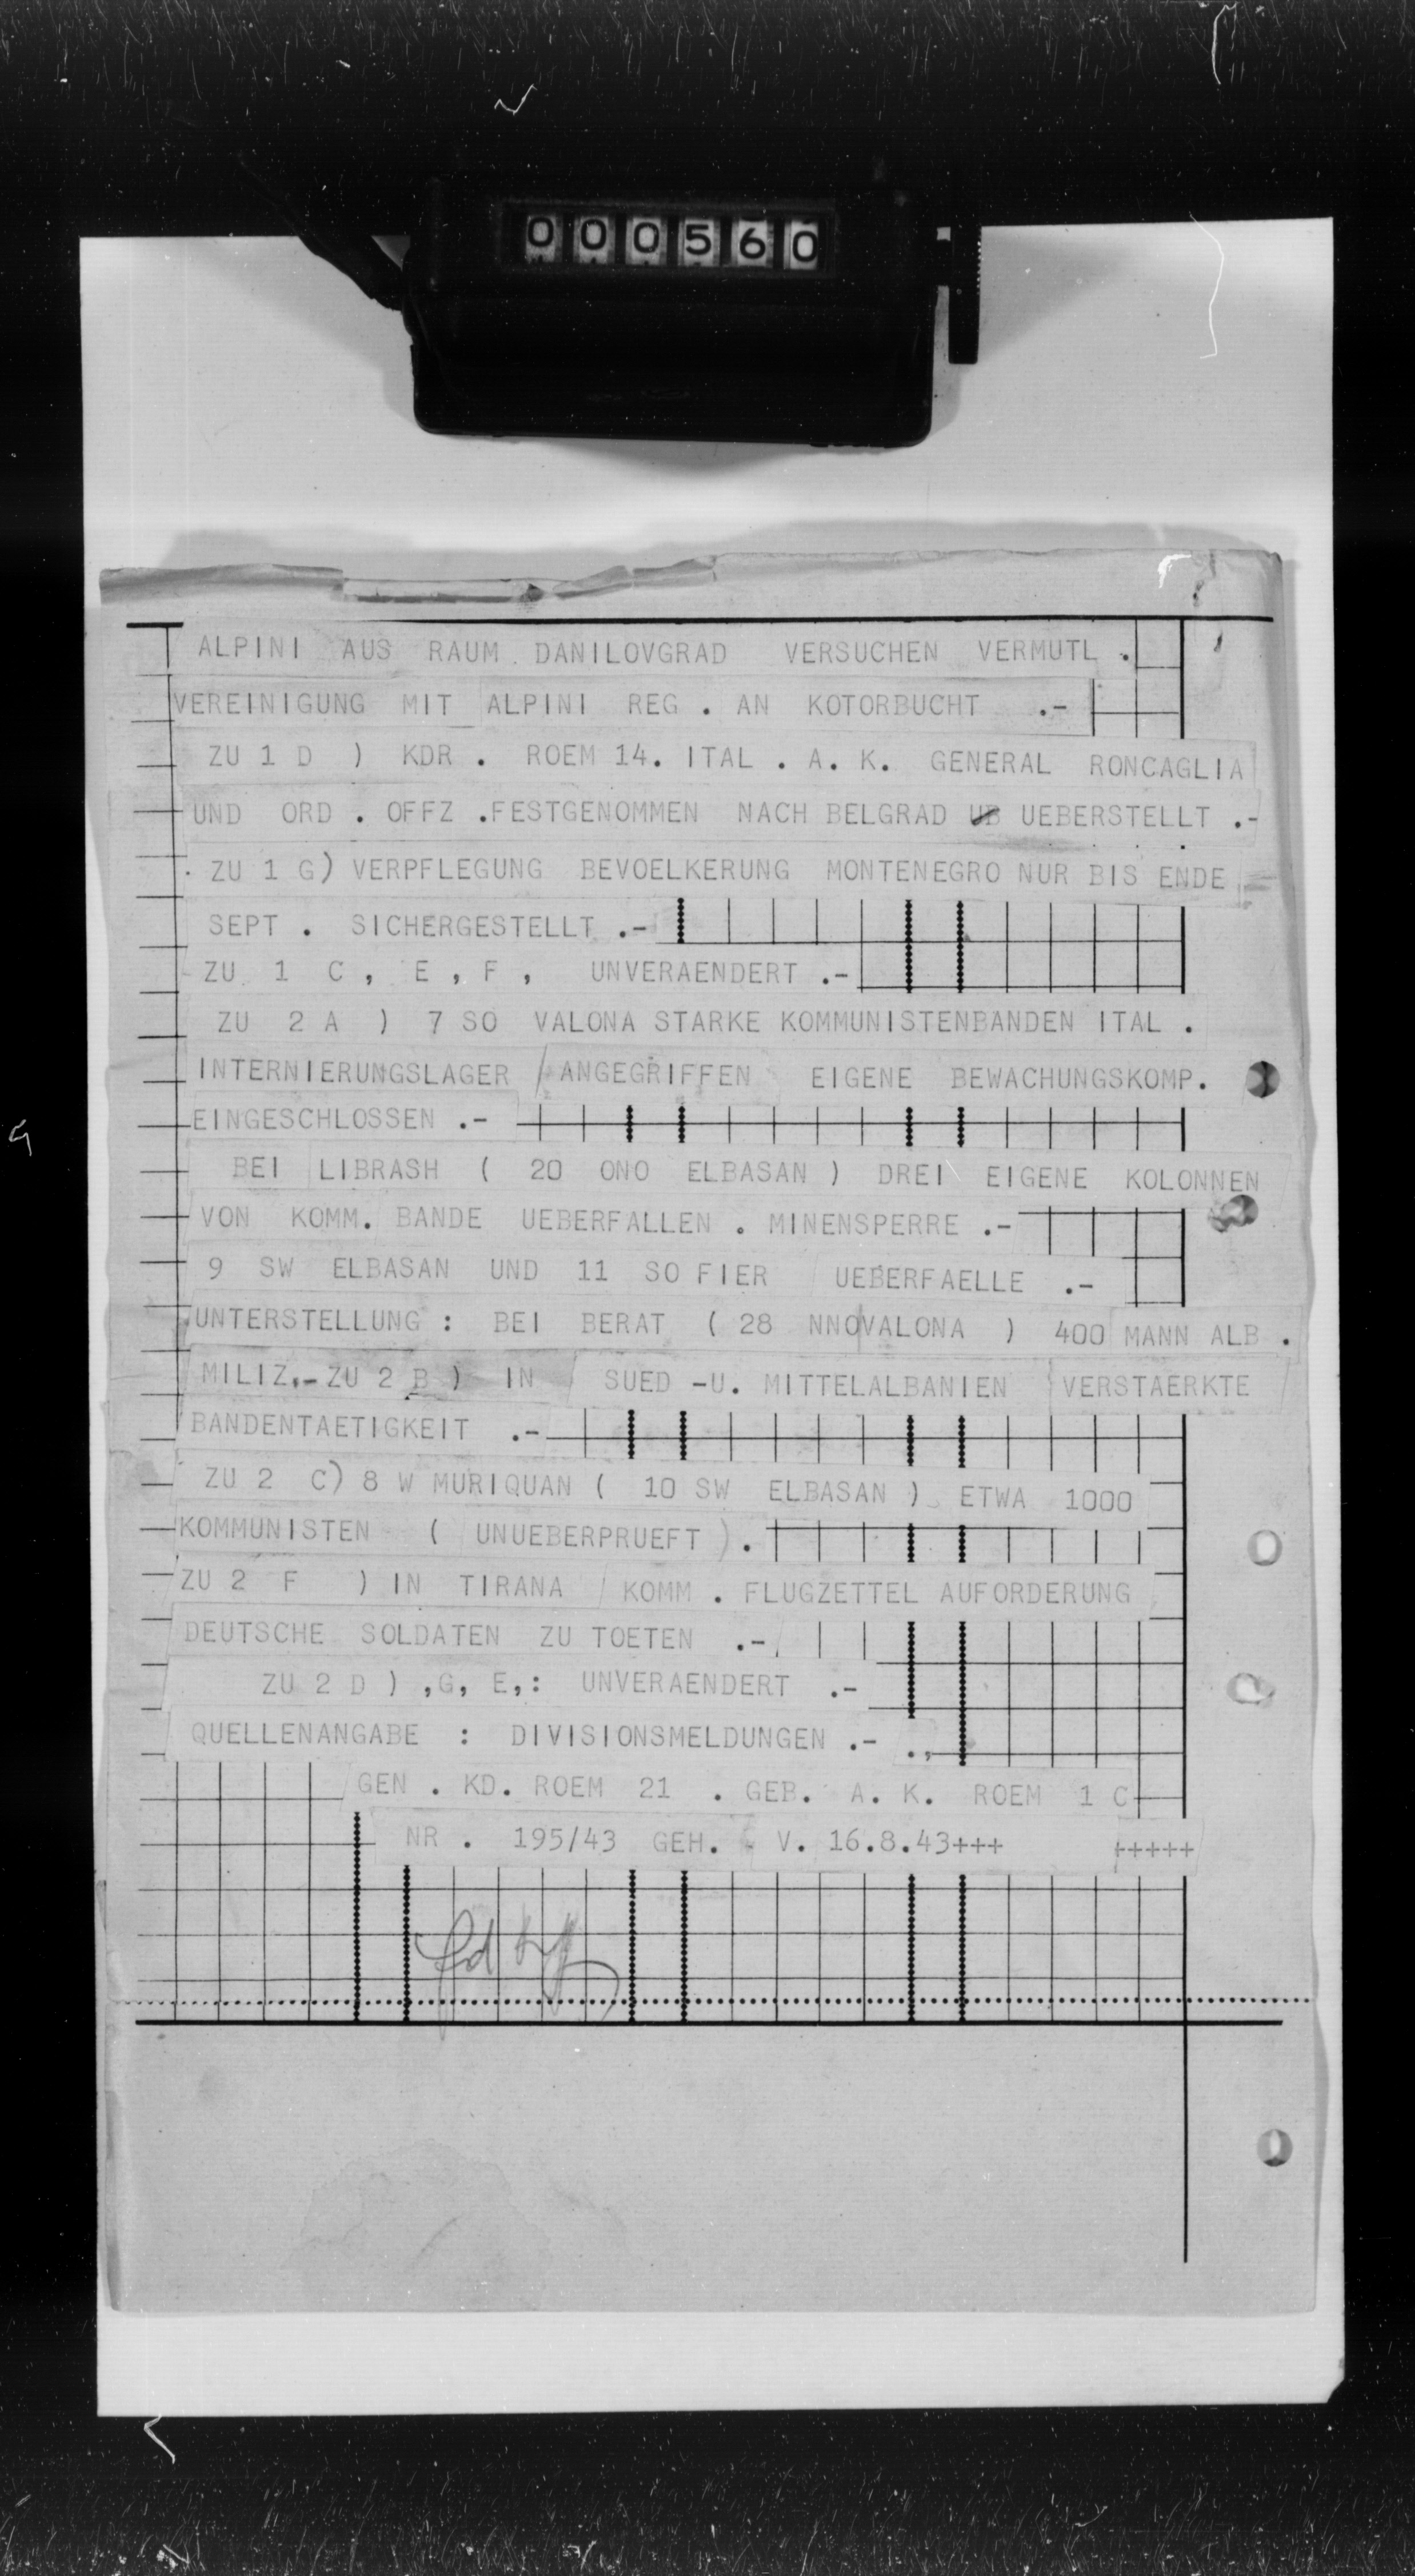 000560
ALPINI AUS RAUM DANILOVGRAD VERSUCHEN VERMUTL .
VEREINIGUNG MIT ALPINI REG . AN KOTORBUCHT .-
ZU 1 D ) KDR . ROEM 14. ITAL . A. K. GENERAL RONCAGLIA
UND ORD . OFFZ .FESTGENOMMEN NACH BELGRAD UB UEBERSTELLT .-
ZU 1 G) VERPFLEGUNG BEVOELKERUNG MONTENEGRO NUR BIS ENDE
SEPT . SICHERGESTELLT .-
ZU 1 C , E , F , UNVERAENDERT .-
ZU 2 A ) 7 SO VALONA STARKE KOMMUNISTENBANDEN ITAL .
INTERNIERUNGSLAGER ANGEGRIFFEN EIGENE BEWACHUNGSKOMP.
EINGESCHLOSSEN .-
BEI LIBRASH ( 20 ONO ELBASAN ) DREI EIGENE KOLONNEN
VON KOMM. BANDE UEBERFALLEN . MINENSPERRE .-
9 SW ELBASAN UND 11 SO FIER UEBERFAELLE .-
UNTERSTELLUNG : BEI BERAT ( 28 NNOVALONA ) 400 MANN ALB .
MILIZ.- ZU 2 B ) IN SUED -U. MITTELALBANIEN VERSTAERKTE
BANDENTAETIGKEIT .-
ZU 2 C) 8 W MURIQUAN ( 10 SW ELBASAN ) ETWA 1000
KOMMUNISTEN ( UNUEBERPRUEFT ) .
ZU 2 F ) IN TIRANA KOMM . FLUGZETTEL AUFORDERUNG
DEUTSCHE SOLDATEN ZU TOETEN .-
ZU 2 D ) ,G, E,: UNVERAENDERT .-
QUELLENANGABE : DIVISIONSMELDUNGEN .- .,
GEN . KD. ROEM 21 . GEB. A. K. ROEM 1 C
NR . 195/43 GEH. V. 16.8.43+++ +++++